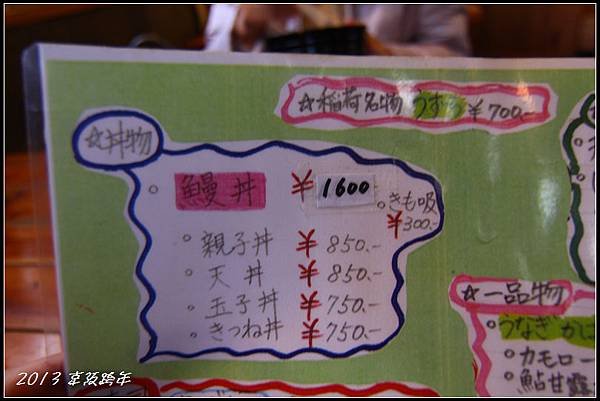 ☆稲荷名物 うずら ¥700.-
☆丼物
。鰻丼 ¥ 1600
。きも吸
¥300.-
。親子丼 ¥ 850.-
。天丼 ¥ 850.-
。玉子丼 ¥ 750.-
。きつね丼 ¥ 750.-
☆一品物
。うなぎ
。カモロー
。鮎甘露
2013 京阪跨年